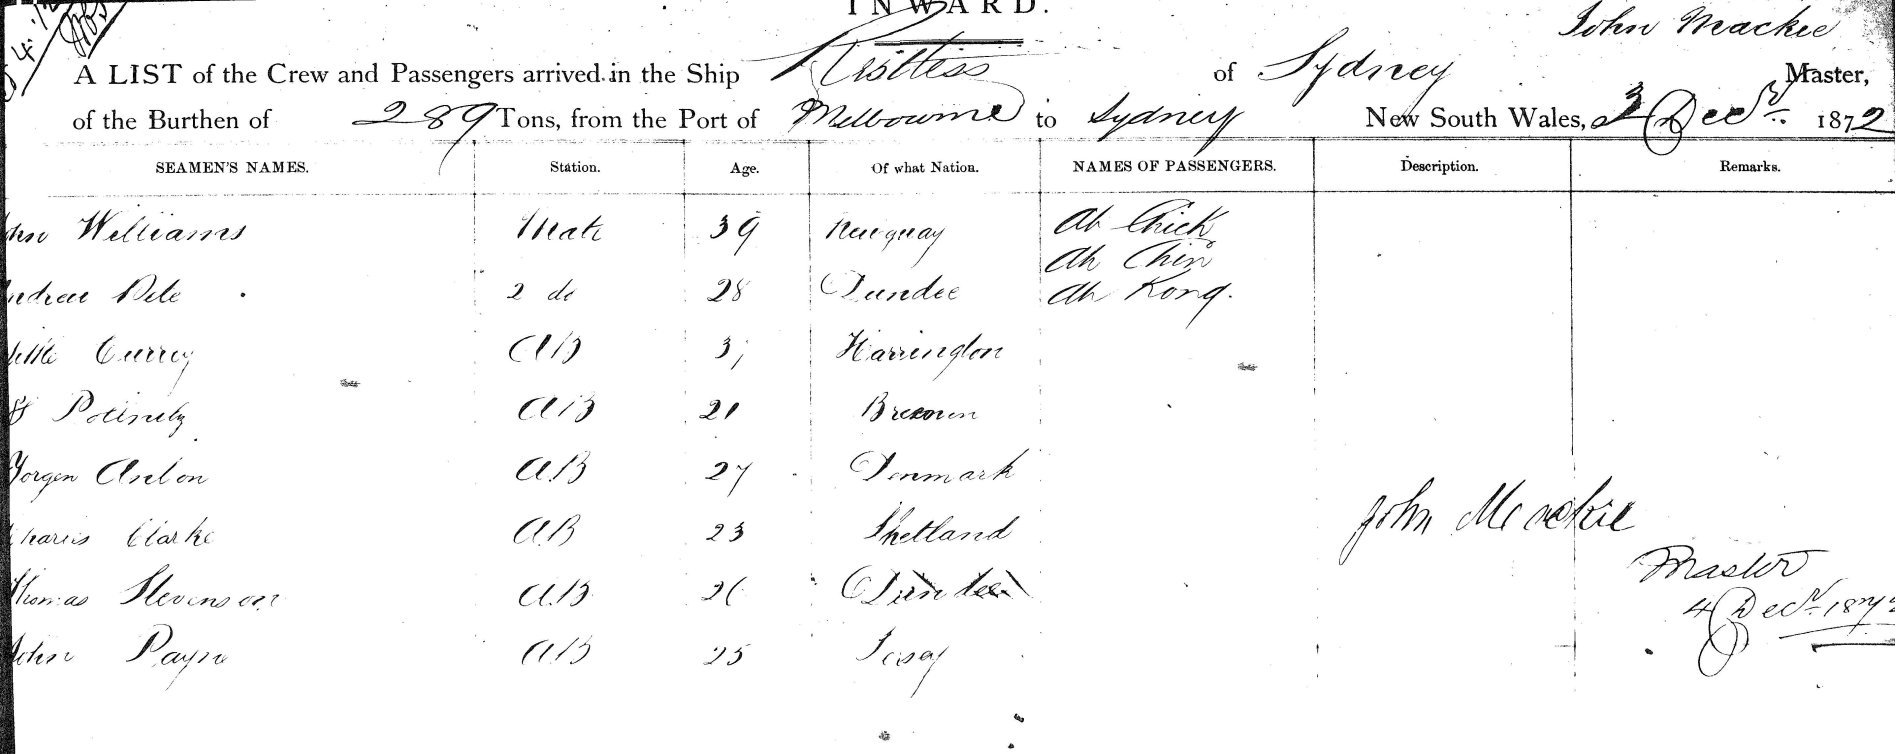 INWARD.
John Mackie
A LIST of the Crew and Passengers arrived in the Ship Restless of Sydney Master,
of the Burthen of 289 Tons, from the Port of Melbourne to Sydney New South Wales, 3 Decr. 1872
SEAMEN'S NAMES. Station. Age. Of what Nation. NAMES OF PASSENGERS. Description. Remarks.
Williams Mate 39 Newquay Ah Chick
Ah Chin
2 do 28 Dundee Ah Kong.
Currey AB Harrington
AB 21 Bremen
Yorgen Anton AB 27 Denmark
Charles Clarke AB 23 Shetland
John Mackie
Master
Thomas Stevenson AB 26 Dundee
4 Decr. 1872
John Payne AB 25